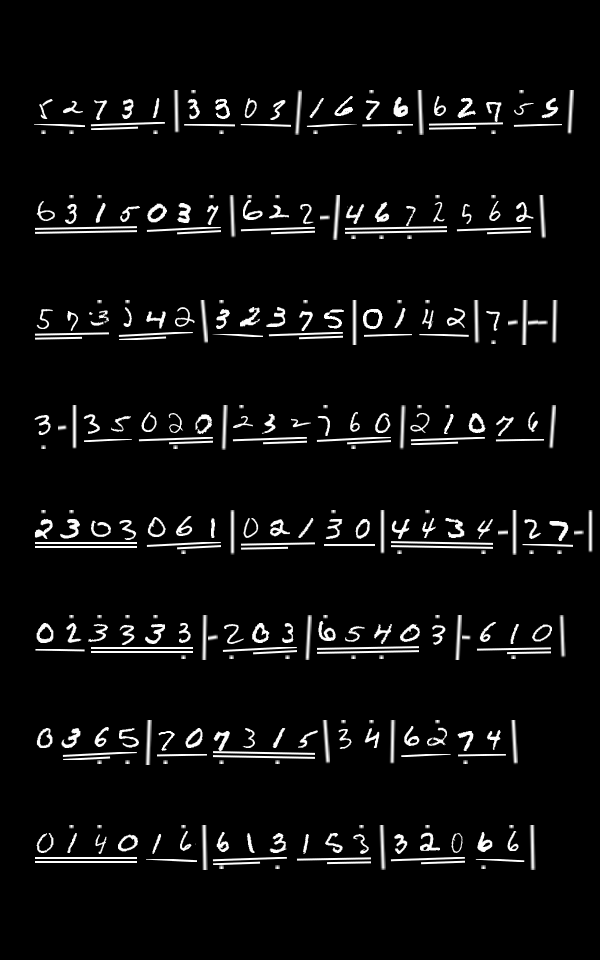 5 2 7 3 1 | 3 3 0 3 | 1 6 7 6 | 6 2 7 5 5 |
6 3 1 5 0 3 7 | 6 2 2 - | 4 6 7 2 5 6 2 |
5 7 3 1 4 2 | 3 2 3 7 5 | 0 1 4 2 | 7 - | - - |
3 - | 3 5 0 2 0 | 2 3 2 7 6 0 | 2 1 0 7 6 |
2 3 0 3 0 6 1 | 0 2 1 3 0 | 4 4 3 4 - | 2 7 - |
0 2 3 3 3 3 | - 2 0 3 | 6 5 4 0 3 | - 6 1 0 |
0 3 6 5 | 7 0 7 3 1 5 | 3 4 | 6 2 7 4 |
0 1 4 0 1 6 | 6 1 3 1 5 3 | 3 2 0 6 6 |